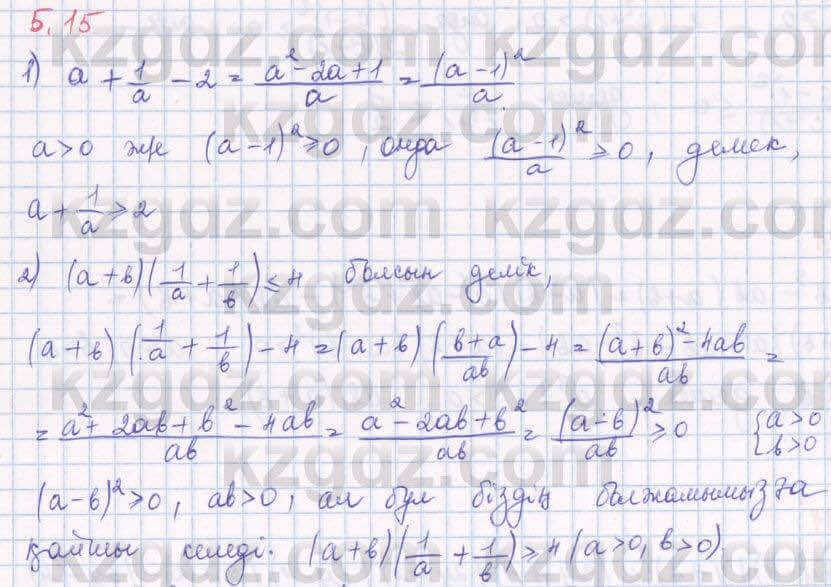 5.15
1) a + 1/a - 2 = (a² - 2a + 1)/a = (a - 1)²/a
a > 0 және (a - 1)² ≥ 0, онда (a - 1)²/a ≥ 0, демек,
a + 1/a ≥ 2
2) (a + b)(1/a + 1/b) ≤ 4 болсын делік,
(a + b)(1/a + 1/b) - 4 = (a + b)((b + a)/ab) - 4 = ((a + b)² - 4ab)/ab =
= (a² + 2ab + b² - 4ab)/ab = (a² - 2ab + b²)/ab = (a - b)²/ab ≥ 0 { a > 0 b > 0
(a - b)² ≥ 0, ab > 0, ал бұл біздің болжамымызға
қайшы келеді. (a + b)(1/a + 1/b) ≥ 4 (a > 0, b > 0)
kzgdz.com